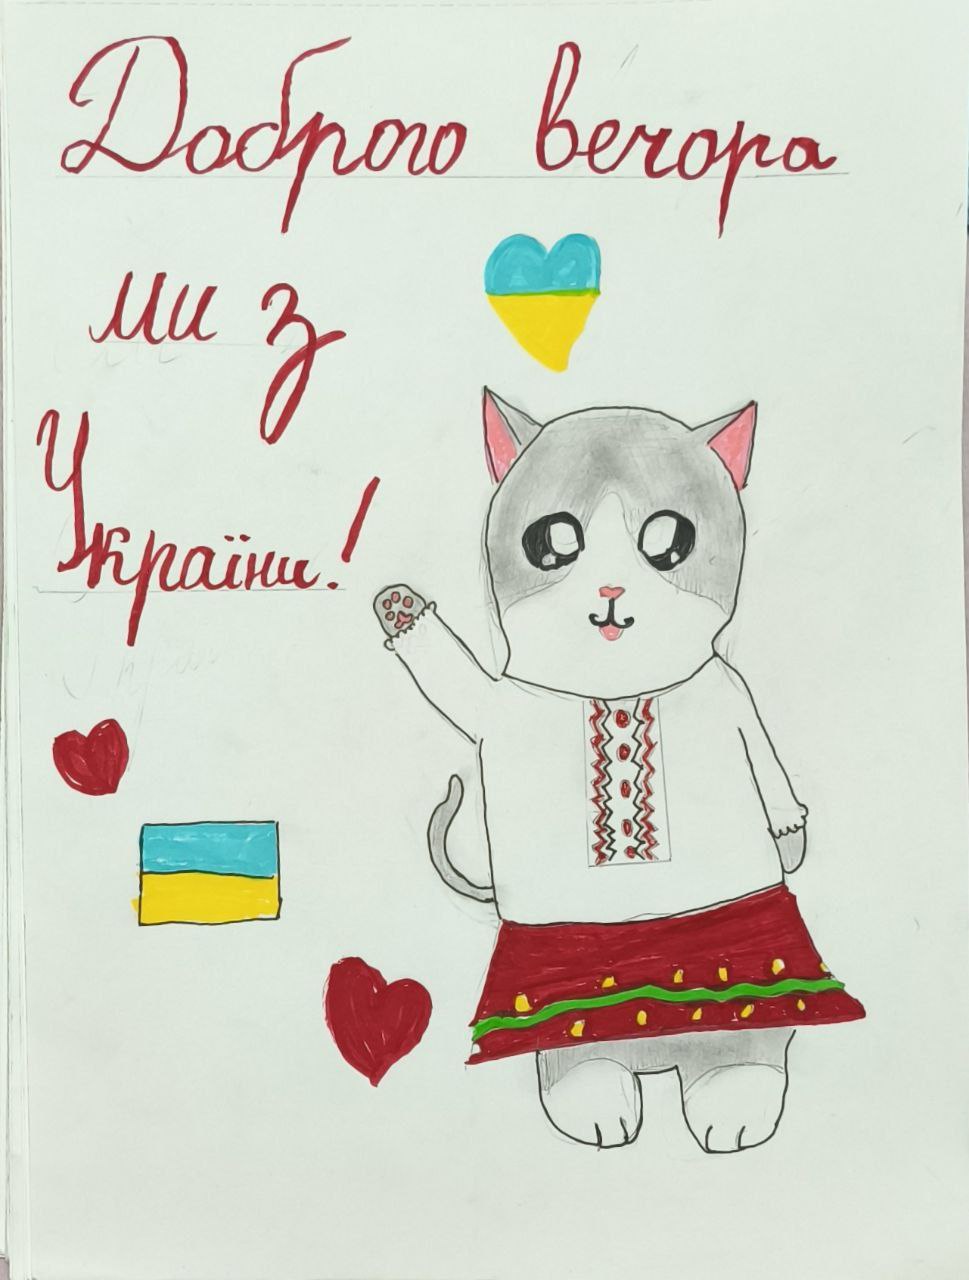 Доброго вечора
ми з
України!